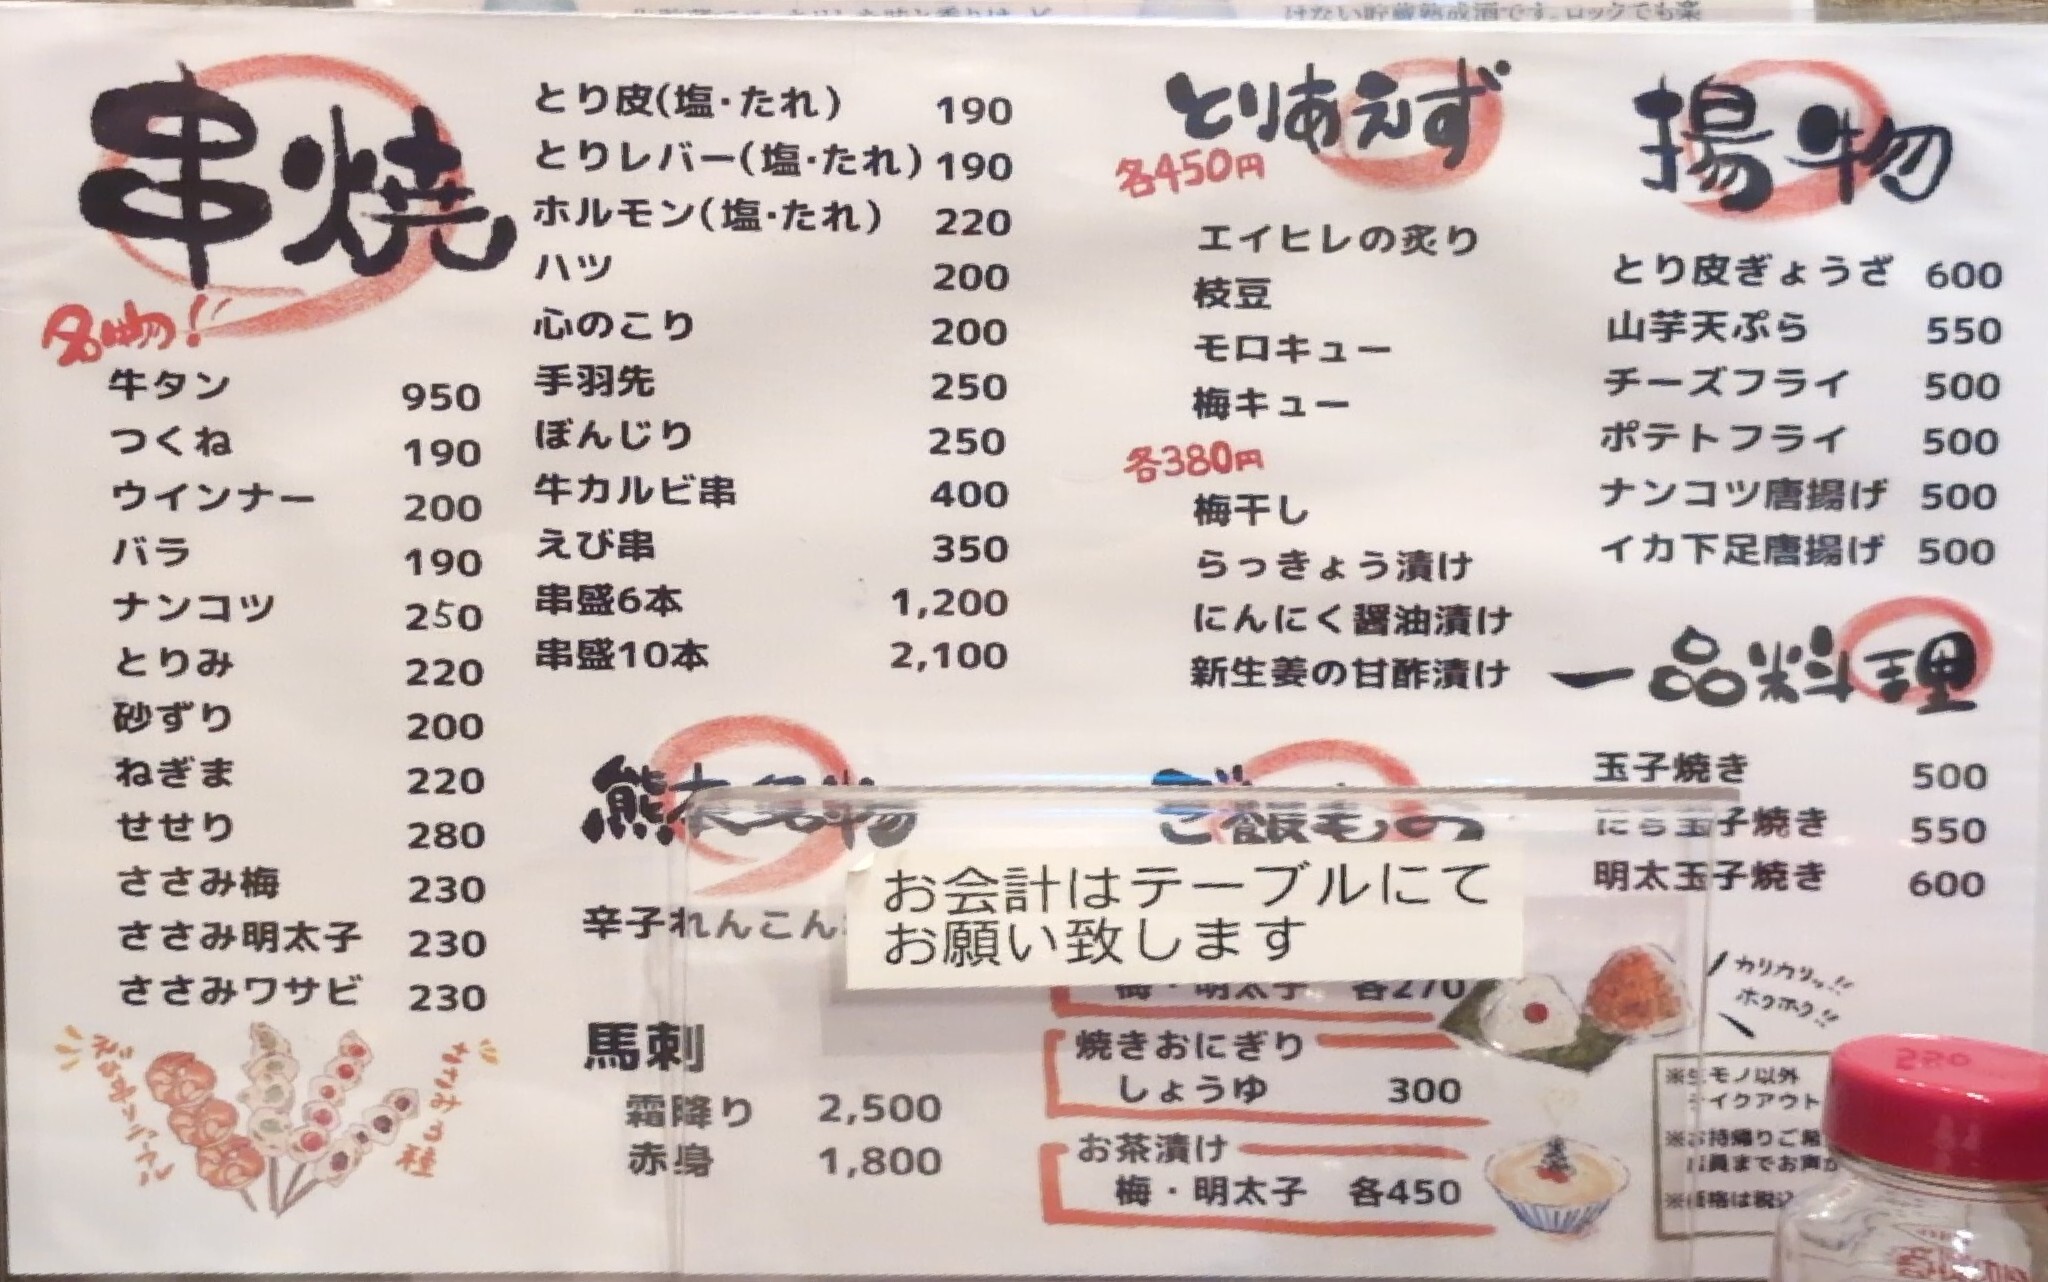 けない貯蔵熟成酒です。ロックでも楽
串焼
名物!
牛タン 950
つくね 190
ウインナー 200
バラ 190
ナンコツ 250
とりみ 220
砂ずり 200
ねぎま 220
せせり 280
ささみ梅 230
ささみ明太子 230
ささみワサビ 230
とり皮(塩・たれ) 190
とりレバー(塩・たれ) 190
ホルモン(塩・たれ) 220
ハツ 200
心のこり 200
手羽先 250
ぼんじり 250
牛カルビ串 400
えび串 350
串盛6本 1,200
串盛10本 2,100
熊本名物
辛子れんこん
馬刺
霜降り 2,500
赤身 1,800
とりあえず
各450円
エイヒレの炙り
枝豆
モロキュー
梅キュー
各380円
梅干し
らっきょう漬け
にんにく醤油漬け
新生姜の甘酢漬け
ご飯もの
お会計はテーブルにて
お願い致します
梅・明太子 各270
焼きおにぎり
しょうゆ 300
お茶漬け
梅・明太子 各450
揚物
とり皮ぎょうざ 600
山芋天ぷら 550
チーズフライ 500
ポテトフライ 500
ナンコツ唐揚げ 500
イカ下足唐揚げ 500
一品料理
玉子焼き 500
にら玉子焼き 550
明太玉子焼き 600
カリカリッ!!
ホクホク!!
※生モノ以外
テイクアウト
※お持帰りご希
店員までお声が
※価格は税込